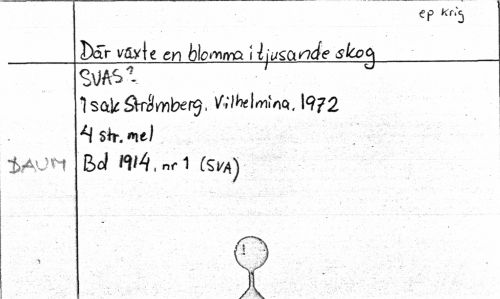 ep krig
Där växte en blomma i tjusande skog
SVAS?
Isak Strömberg, Vilhelmina, 1972
4 str. mel
DAUM Bd 1914, nr 1 (SVA)
1